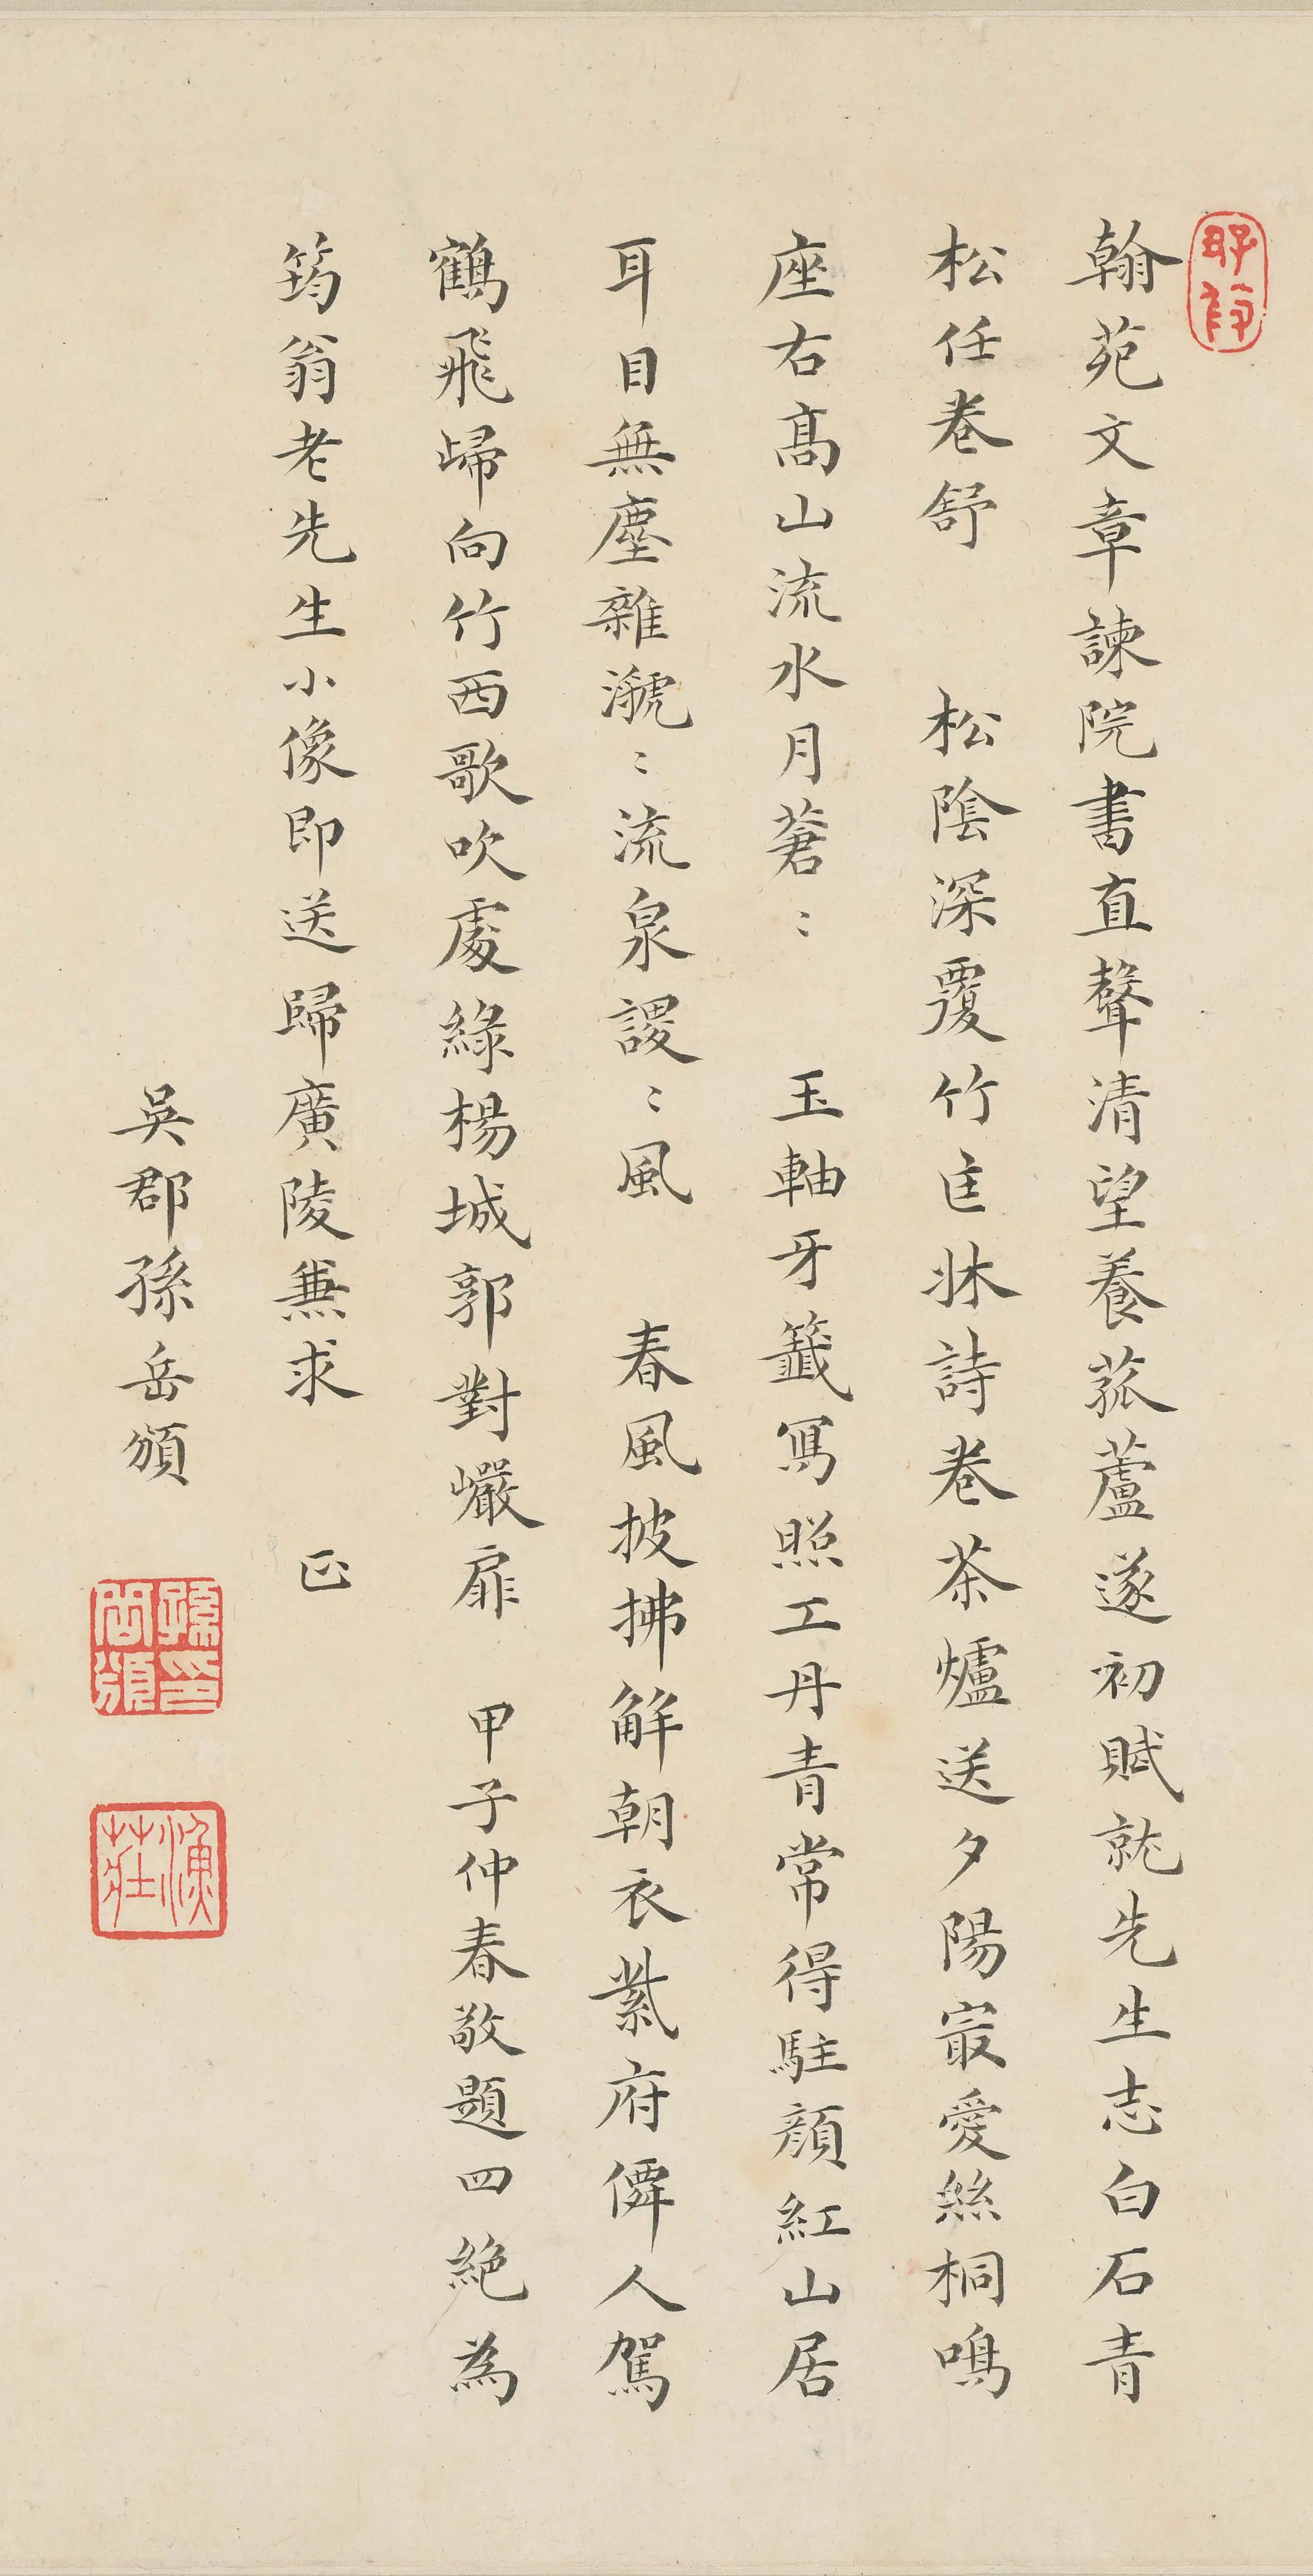 翰苑文章諫院書直聲清望養菰蘆遂初賦就先生志白石青
松任卷舒　松陰深覆竹匡牀詩卷茶爐送夕陽冣愛絲桐鳴
座右高山流水月蒼〻　玉軸牙籤寫照工丹青常得駐顏紅山居
耳目無塵雜㶁〻流泉謖〻風　春風披拂解朝衣紫府僊人駕
鶴飛歸向竹西歌吹處綠楊城郭對巖扉　甲子仲春敬題四絶為
筠翁老先生小像即送歸廣陵兼求　正
吳郡孫岳頒
孫印岳頒
漁莊